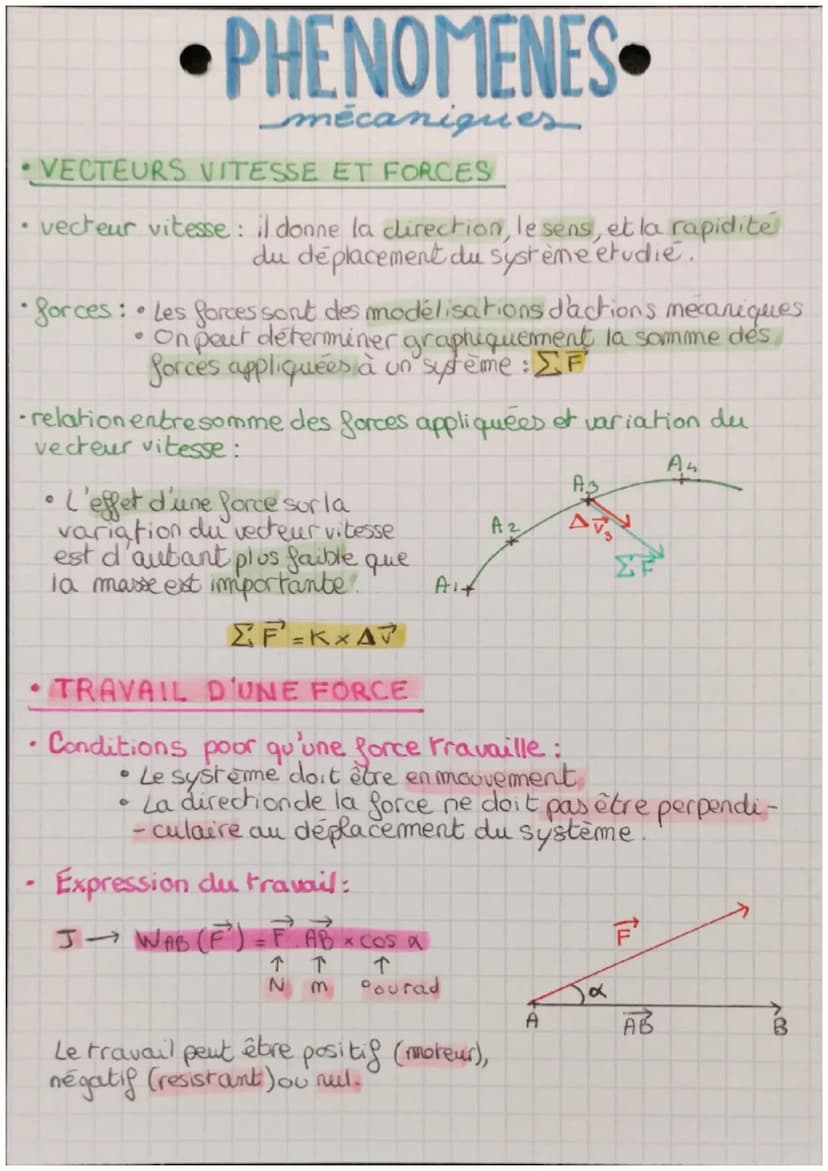 • PHENOMENES •
mécaniques
• VECTEURS VITESSE ET FORCES
• vecteur vitesse : il donne la direction, le sens, et la rapidité
du déplacement du système étudié.
• forces : • Les forces sont des modélisations d'actions mécaniques
• On peut déterminer graphiquement la somme des
forces appliquées à un système : ∑F⃗
• relation entre somme des forces appliquées et variation du
vecteur vitesse :
• L'effet d'une force sur la
variation du vecteur vitesse
est d'autant plus faible que
la masse est importante.
A1
A2
A3
A4
Δv⃗3
∑F⃗
∑F⃗ = K × Δv⃗
• TRAVAIL D'UNE FORCE
• Conditions pour qu'une force travaille :
• Le système doit être en mouvement
• La direction de la force ne doit pas être perpendi-
-culaire au déplacement du système.
• Expression du travail :
J → WAB (F⃗) = F⃗ . AB⃗ × cos α
↑ ↑ ↑
N m ° ou rad
F⃗
α
A AB⃗ B
Le travail peut être positif (moteur),
négatif (resistant) ou nul.